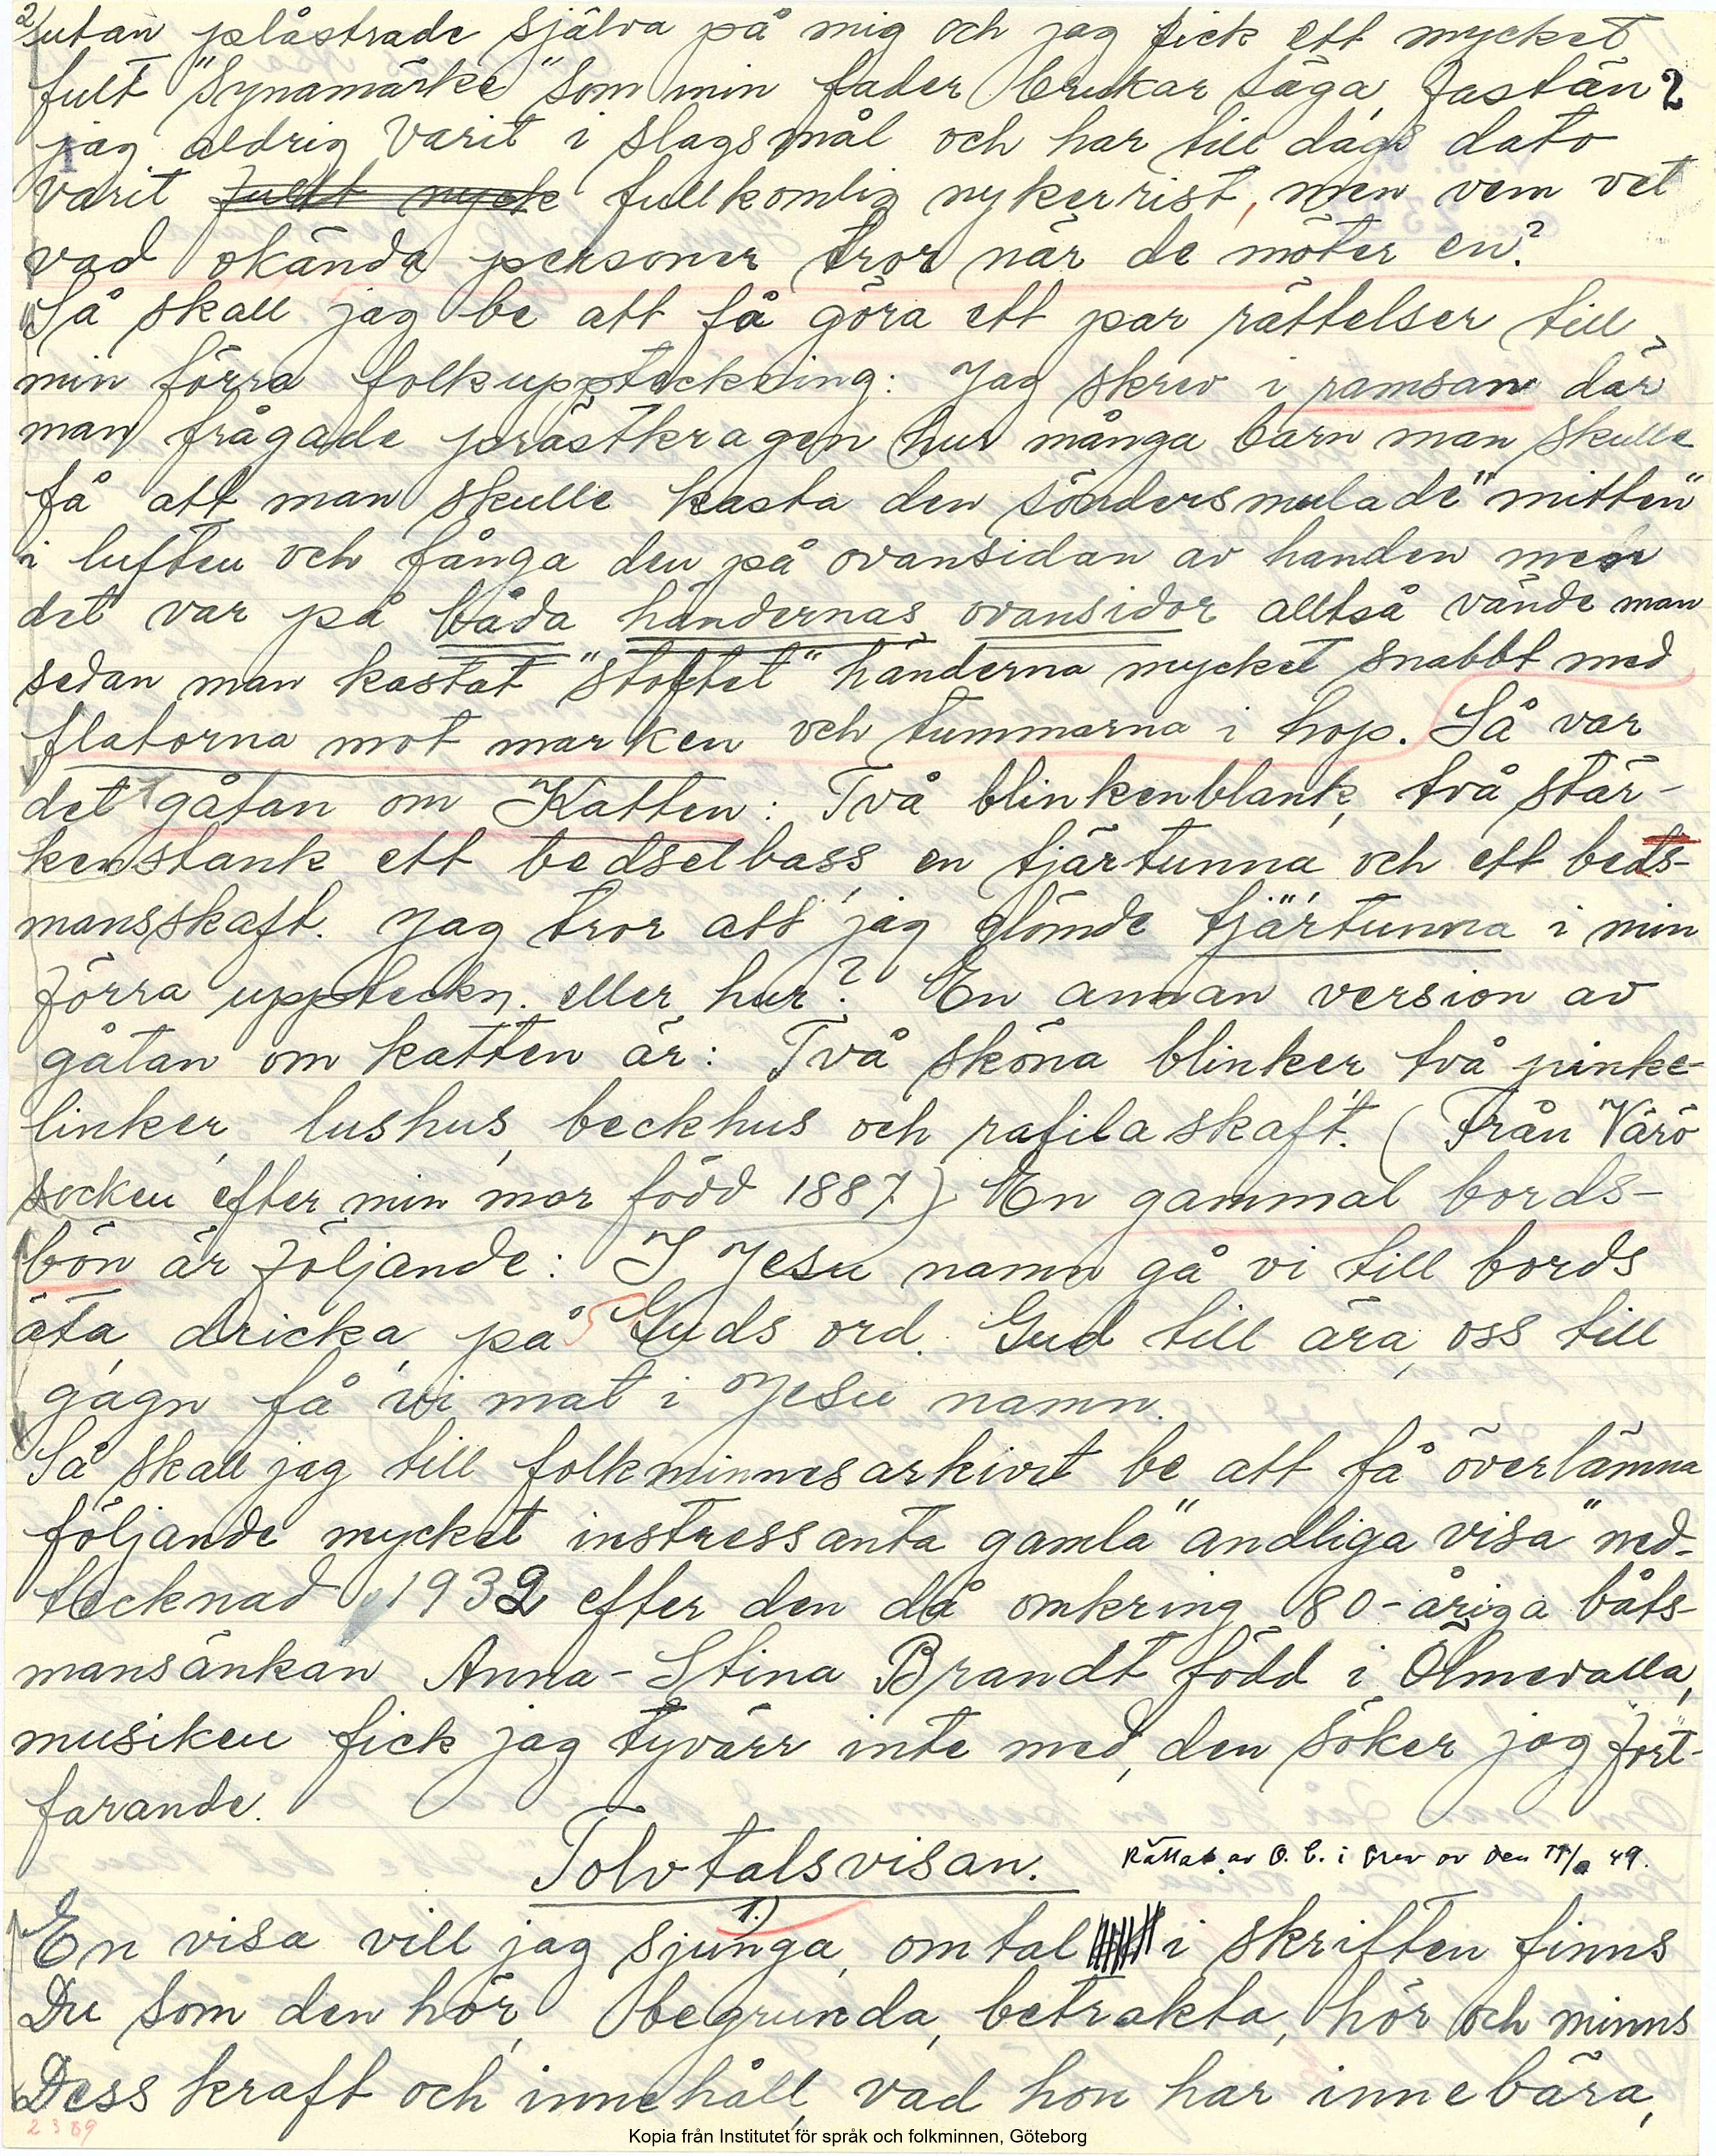 2/
utan plåstrade själva på mig och jag fick ett mycket
fult "synamärke" som min fader brukar säga, fastän 2
jag aldrig varit i slagsmål och har till dags dato
varit fullt nyck fullkomlig nykerrist, men vem vet
vad okända personer tror när de möter en?
Så skall jag be att få göra ett par rättelser till
min förra folkuppteckning: Jag skrev i ramsan där
man frågade prästkragen hur många barn man skulle
få att man skulle kasta den söndersmulade "mitten"
i luften och fånga den på ovansidan av handen men
det var på båda händernas ovansidor alltså vände man
sedan man kastat "stoftet" händerna mycket snabbt med
flatorna mot marken och tummarna i hop. Så var
det gåtan om Katten: Två blinkenblank, två stär-
kenstank ett bedselbass, en tjärtunna och ett beds-
mansskaft. Jag tror att jag glömde tjärtunna i min
förra uppteckn. eller hur? En annan version av
gåtan om katten är: Två sköna blinker, två pinke-
linker, lushus, beckhus och rafila skaft. (Från Värö
socken efter min mor född 1887) En gammal bords-
bön är följande: I Jesu namn gå vi till bords
äta, dricka, på Guds ord. Gud till ära, oss till
gagn få vi mat i Jesu namn.
Så skall jag till folkminnesarkivet be att få överlämna
följande mycket instressanta gamla "andliga visa" ned-
tecknad 1932 efter den då omkring 80-åriga båts-
mansänkan Anna-Stina Brandt född i Ölmevalla,
musiken fick jag tyvärr inte med, den söker jag fort-
farande.
Tolvtalsvisan. Rättat av O. B. i brev av den 49.
1.)
En visa vill jag sjunga, om tal i skriften finns
Du som den hör, begrunda, betrakta, hör och minns
Dess kraft och innehåll, vad hon har innebära,
2389
Kopia från Institutet för språk och folkminnen, Göteborg